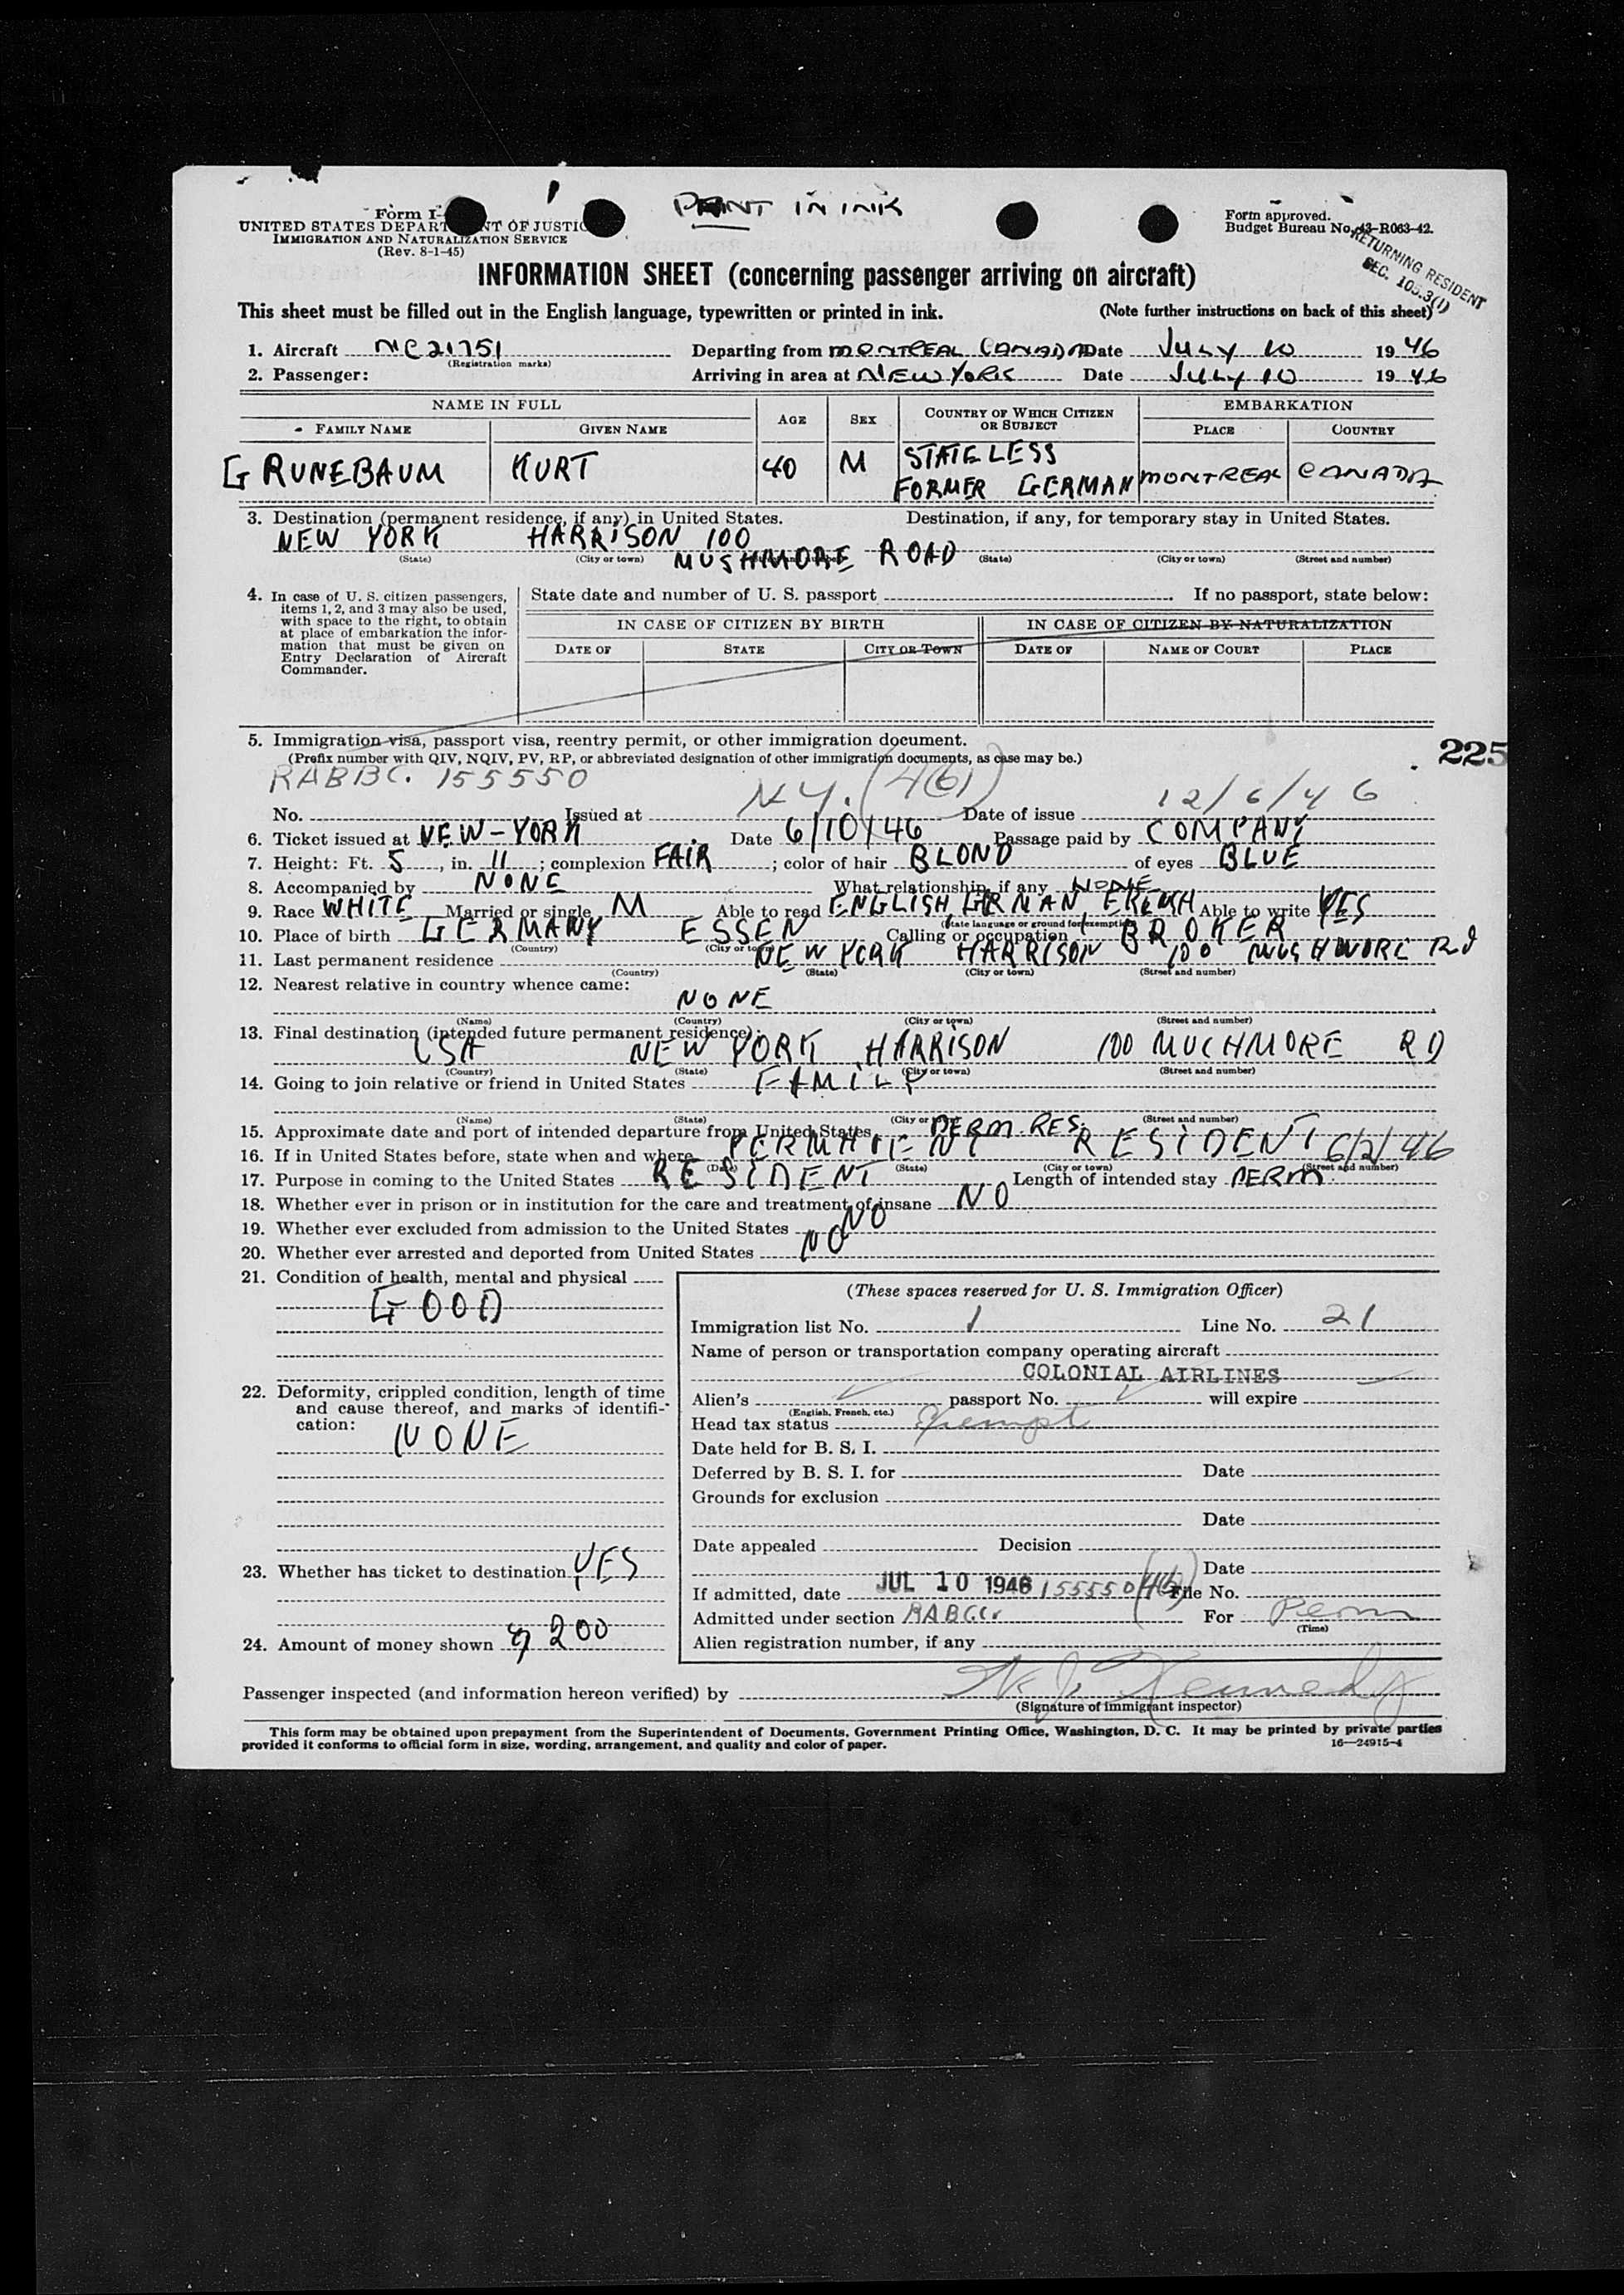 PRINT IN INK
Form I-
UNITED STATES DEPARTMENT OF JUSTICE
IMMIGRATION AND NATURALIZATION SERVICE
(Rev. 8-1-45)
Form approved.
Budget Bureau No. 43-R063-42.
RETURNING RESIDENT
SEC. 105.3(1)
INFORMATION SHEET (concerning passenger arriving on aircraft)
This sheet must be filled out in the English language, typewritten or printed in ink. (Note further instructions on back of this sheet)
1. Aircraft NC21751 Departing from MONTREAL CANADA Date JULY 10 1946
(Registration marks)
2. Passenger: Arriving in area at NEW YORK Date JULY 10 1946
NAME IN FULL AGE SEX COUNTRY OF WHICH CITIZEN OR SUBJECT EMBARKATION
FAMILY NAME GIVEN NAME PLACE COUNTRY
GRUNEBAUM KURT 40 M STATELESS FORMER GERMAN MONTREAL CANADA
3. Destination (permanent residence, if any) in United States. Destination, if any, for temporary stay in United States.
NEW YORK HARRISON 100 MUSHMORE ROAD
(State) (City or town) (State) (City or town) (Street and number)
4. In case of U. S. citizen passengers, items 1, 2, and 3 may also be used, with space to the right, to obtain at place of embarkation the information that must be given on Entry Declaration of Aircraft Commander.
State date and number of U. S. passport If no passport, state below:
IN CASE OF CITIZEN BY BIRTH IN CASE OF CITIZEN BY NATURALIZATION
DATE OF STATE CITY OR TOWN DATE OF NAME OF COURT PLACE
5. Immigration visa, passport visa, reentry permit, or other immigration document.
225
(Prefix number with QIV, NQIV, PV, RP, or abbreviated designation of other immigration documents, as case may be.)
RABBC. 155550 N.Y. (4(6)) 12/6/46
No. Issued at Date of issue
6. Ticket issued at NEW-YORK Date 6/10/46 Passage paid by COMPANY
7. Height: Ft. 5, in. 11; complexion FAIR; color of hair BLOND of eyes BLUE
8. Accompanied by NONE What relationship, if any NONE
9. Race WHITE Married or single M Able to read ENGLISH, GERMAN, FRENCH Able to write YES
(State language or ground for exemption)
10. Place of birth GERMANY ESSEN Calling or occupation BROKER
(Country) (City or town)
11. Last permanent residence NEW YORK HARRISON 100 MUSHMORE RD
(Country) (State) (City or town) (Street and number)
12. Nearest relative in country whence came:
NONE
(Name) (Country) (City or town) (Street and number)
13. Final destination (intended future permanent residence):
USA NEW YORK HARRISON 100 MUCHMORE RD
(Country) (State) (City or town) (Street and number)
14. Going to join relative or friend in United States FAMILY
(Name) (State) (City or town) (Street and number)
15. Approximate date and port of intended departure from United States PERM. RES.
16. If in United States before, state when and where PERMANENT RESIDENT 6/2/46
(Date) (State) (City or town) (Street and number)
17. Purpose in coming to the United States RESIDENT Length of intended stay PERM.
18. Whether ever in prison or in institution for the care and treatment of insane NO
19. Whether ever excluded from admission to the United States NO
20. Whether ever arrested and deported from United States NO
21. Condition of health, mental and physical
GOOD
22. Deformity, crippled condition, length of time and cause thereof, and marks of identification:
NONE
23. Whether has ticket to destination YES
24. Amount of money shown $ 200
(These spaces reserved for U. S. Immigration Officer)
Immigration list No. 1 Line No. 21
Name of person or transportation company operating aircraft
COLONIAL AIRLINES
Alien's passport No. will expire
(English, French, etc.)
Head tax status Exempt
Date held for B. S. I.
Deferred by B. S. I. for Date
Grounds for exclusion
Date
Date appealed Decision
Date
If admitted, date JUL 10 1946 155550 (4(6)) File No.
Admitted under section RABCC. For Perm
(Time)
Alien registration number, if any
Passenger inspected (and information hereon verified) by Kennedy
(Signature of immigrant inspector)
This form may be obtained upon prepayment from the Superintendent of Documents, Government Printing Office, Washington, D. C. It may be printed by private parties
provided it conforms to official form in size, wording, arrangement, and quality and color of paper. 16—24915-4